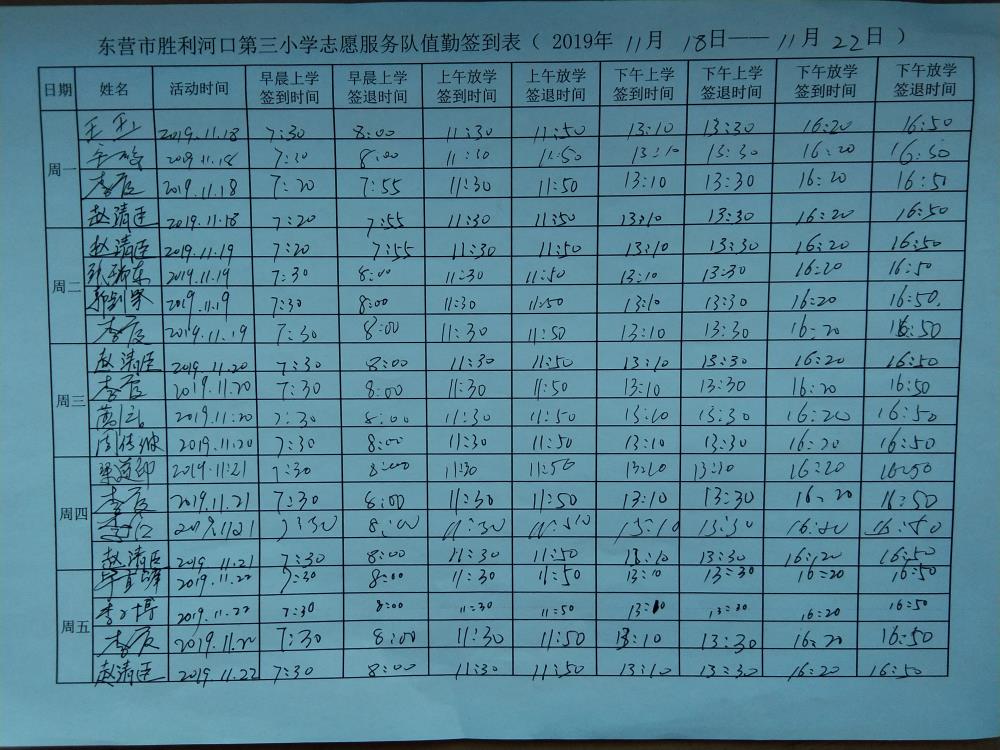 东营市胜利河口第三小学志愿服务队值勤签到表（ 2019年 11月 18日——11月 22日 ）
日期 姓名 活动时间 早晨上学签到时间 早晨上学签退时间 上午放学签到时间 上午放学签退时间 下午上学签到时间 下午上学签退时间 下午放学签到时间 下午放学签退时间
周一 2019.11.18 7:30 8:00 11:30 11:50 13:10 13:30 16:20 16:50
2019.11.18 7:30 8:00 11:30 11:50 13:10 13:30 16:20 16:50
2019.11.18 7:20 7:55 11:30 11:50 13:10 13:30 16:20 16:50
赵清臣 2019.11.18 7:20 7:55 11:30 11:50 13:10 13:30 16:20 16:50
周二 赵清臣 2019.11.19 7:20 7:55 11:30 11:50 13:10 13:30 16:20 16:50
2019.11.19 7:30 8:00 11:30 11:50 13:10 13:30 16:20 16:50
2019.11.19 7:30 8:00 11:30 11:50 13:10 13:30 16:20 16:50
2019.11.19 7:30 8:00 11:30 11:50 13:10 13:30 16:20 16:50
周三 赵清臣 2019.11.20 7:30 8:00 11:30 11:50 13:10 13:30 16:20 16:50
2019.11.20 7:30 8:00 11:30 11:50 13:10 13:30 16:20 16:50
2019.11.20 7:30 8:00 11:30 11:50 13:10 13:30 16:20 16:50
2019.11.20 7:30 8:00 11:30 11:50 13:10 13:30 16:20 16:50
周四 2019.11.21 7:30 8:00 11:30 11:50 13:10 13:10 16:20 16:50
2019.11.21 7:30 8:00 11:30 11:50 13:10 13:30 16:20 16:50
2019.11.21 7:30 8:00 11:30 11:50 13:10 13:30 16:20 16:50
赵清臣 2019.11.21 7:30 8:00 11:30 11:50 13:10 13:30 16:20 16:50
周五 2019.11.22 7:30 8:00 11:30 11:50 13:10 13:30 16:20 16:50
2019.11.22 7:30 8:00 11:30 11:50 13:10 13:30 16:20 16:50
2019.11.22 7:30 8:00 11:30 11:50 13:10 13:30 16:20 16:50
赵清臣 2019.11.22 7:30 8:00 11:30 11:50 13:10 13:30 16:20 16:50